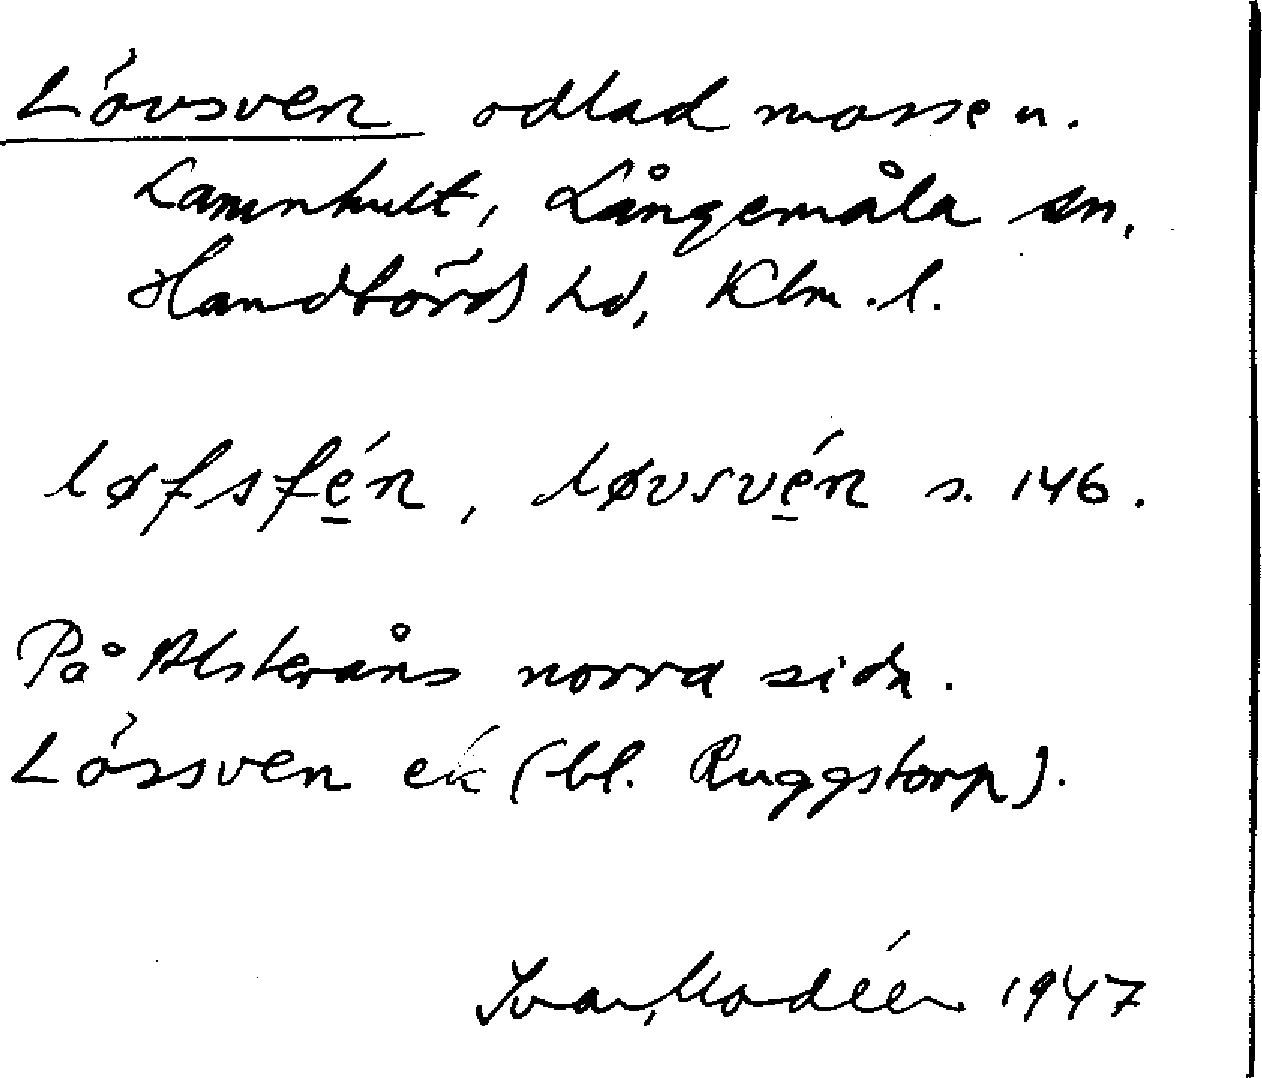 Lövsven odlad mosse u.
Lamnhult, Långemåla sn,
Handbörds hd, Klm. l.
løfsfén, løvsvén s. 146.
På Alsteråns norra sida.
Lössven ek (bl. Ruggstorp).
Ivar Modéer 1947